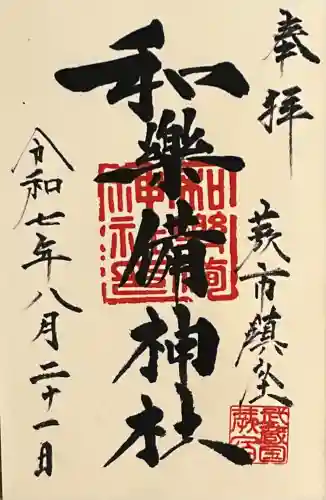 奉拝
蕨市鎮坐
和樂備神社
令和七年八月二十一日
和樂備
神社
武蔵国
蕨宿